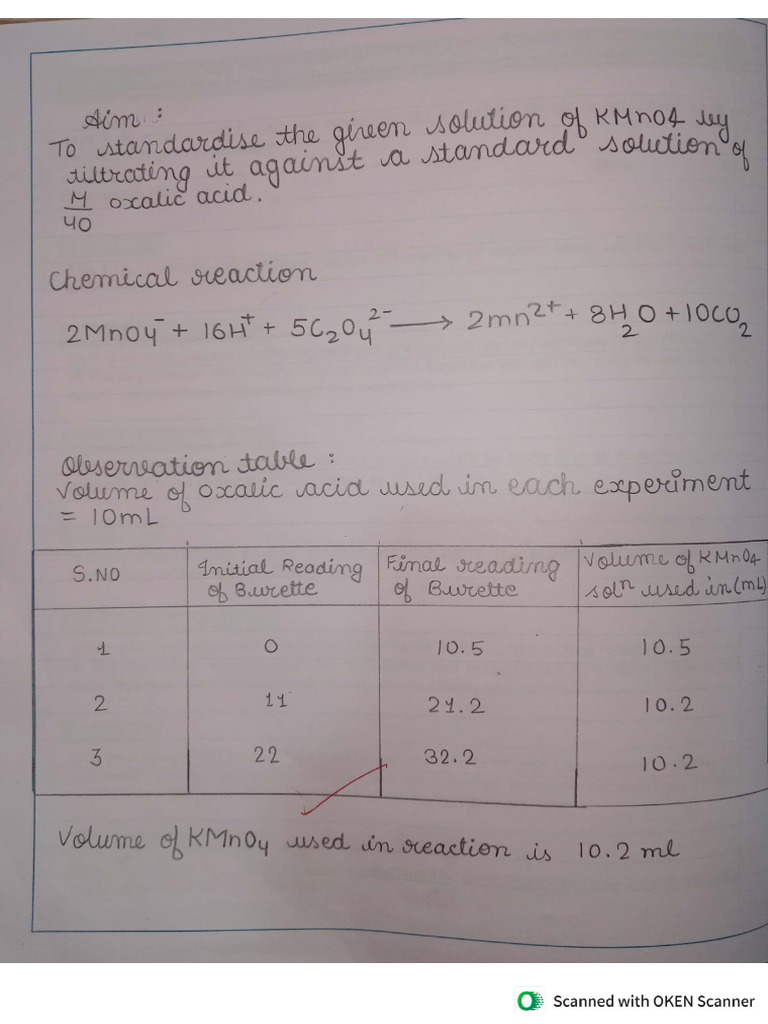 Aim :
To standardise the given solution of KMnO4 by
tiltrating it against a standard solution of
M/40 oxalic acid.
Chemical reaction
2MnO4⁻ + 16H⁺ + 5C₂O₄²⁻ ⟶ 2mn²⁺ + 8H₂O + 10CO₂
Observation table :
Volume of oxalic acid used in each experiment
= 10mL
S.NO | Initial Reading of Burette | Final reading of Burette | Volume of KMnO4 solⁿ used in (mL)
1 | 0 | 10.5 | 10.5
2 | 11 | 21.2 | 10.2
3 | 22 | 32.2 | 10.2
Volume of KMnO₄ used in reaction is 10.2 ml
Scanned with OKEN Scanner